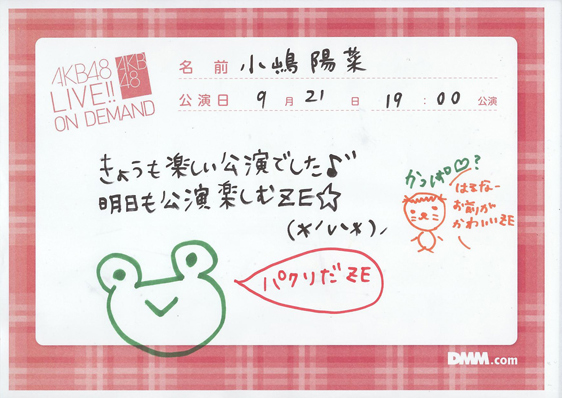 AKB48
LIVE!!
ON DEMAND
AKB
48
名前 小嶋陽菜
公演日 9月21日 19:00公演
きょうも楽しい公演でした♪
明日も公演楽しむZE☆
かっぱ♡?
はるなー
お前が
かわいいZE
パクリだZE
DMM.com